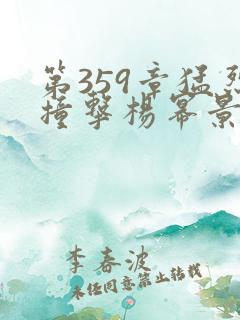 第359章猛烈
撞擊楊冪景
李春波
未经同意禁止转载